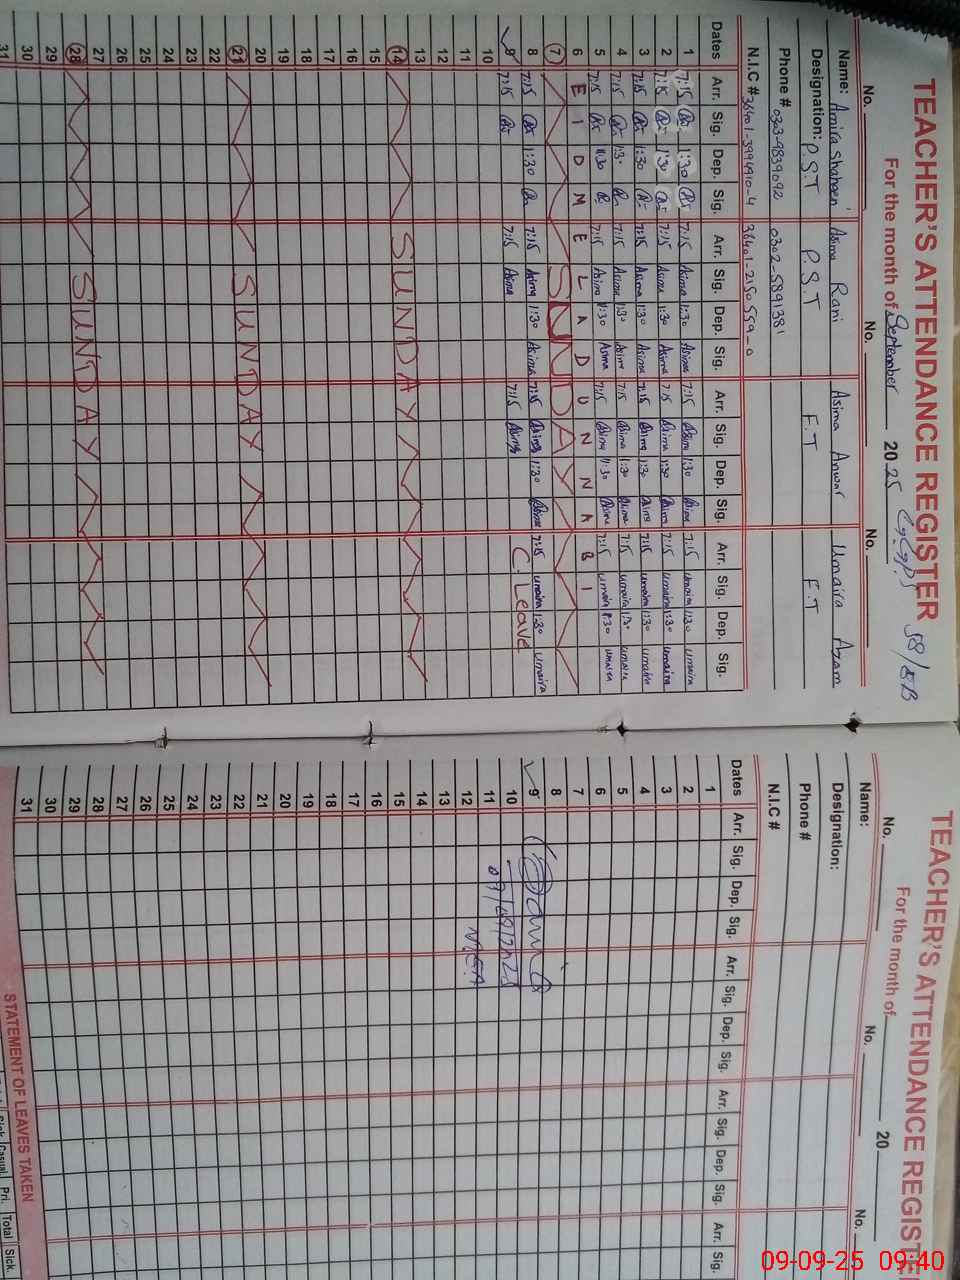 TEACHER'S ATTENDANCE REGISTER
58/EB
For the month of September 2025
No. No. No.
Name: Amira Shaheen Asima Rani Asima Anwar Umaira Azam
Designation: P.S.T P.S.T E.T E.T
Phone # 0303-9839092 0302-5891381
N.I.C # 36401-3994910-4 36401-2150559-0
Dates Arr. Sig. Dep. Sig. Arr. Sig. Dep. Sig. Arr. Sig. Dep. Sig. Arr. Sig. Dep. Sig.
1 7:15 1:30 7:15 Asima 1:30 Asima 7:15 Asima 1:30 Asima 7:15 umaira 1:30 umaira
2 7:15 1:30 7:15 Asima 1:30 Asima 7:15 Asima 1:30 Asima 7:15 umaira 1:30 umaira
3 7:15 1:30 7:15 Asima 1:30 Asima 7:15 Asima 1:30 Asima 7:15 umaira 1:30 umaira
4 7:15 1:30 7:15 Asima 1:30 Asima 7:15 Asima 1:30 Asima 7:15 umaira 1:30 umaira
5 7:15 1:30 7:15 Asima 1:30 Asima 7:15 Asima 1:30 Asima 7:15 umaira 1:30 umaira
6 E I D M E L A D U N N A B I
7 SUNDAY
8 7:15 1:30 7:15 Asima 1:30 Asima 7:15 Asima 1:30 Asima 7:15 umaira 1:30 umaira
9 7:15 7:15 Asima 7:15 Asima C. Leave
10
11
12
13
14 SUNDAY
15
16
17
18
19
20
21 SUNDAY
22
23
24
25
26
27
28 SUNDAY
29
30
31
TEACHER'S ATTENDANCE REGISTE
For the month of 20
No. No. No.
Name:
Designation:
Phone #
N.I.C #
Dates Arr. Sig. Dep. Sig. Arr. Sig. Dep. Sig. Arr. Sig. Dep. Sig. Arr. Sig.
1
2
3
4
5
6
7
8
9
10 09/09/2025
11
12
13
14
15
16
17
18
19
20
21
22
23
24
25
26
27
28
29
30
31
STATEMENT OF LEAVES TAKEN
Sick Casual Pri. Total Sick.
09-09-25 09:40